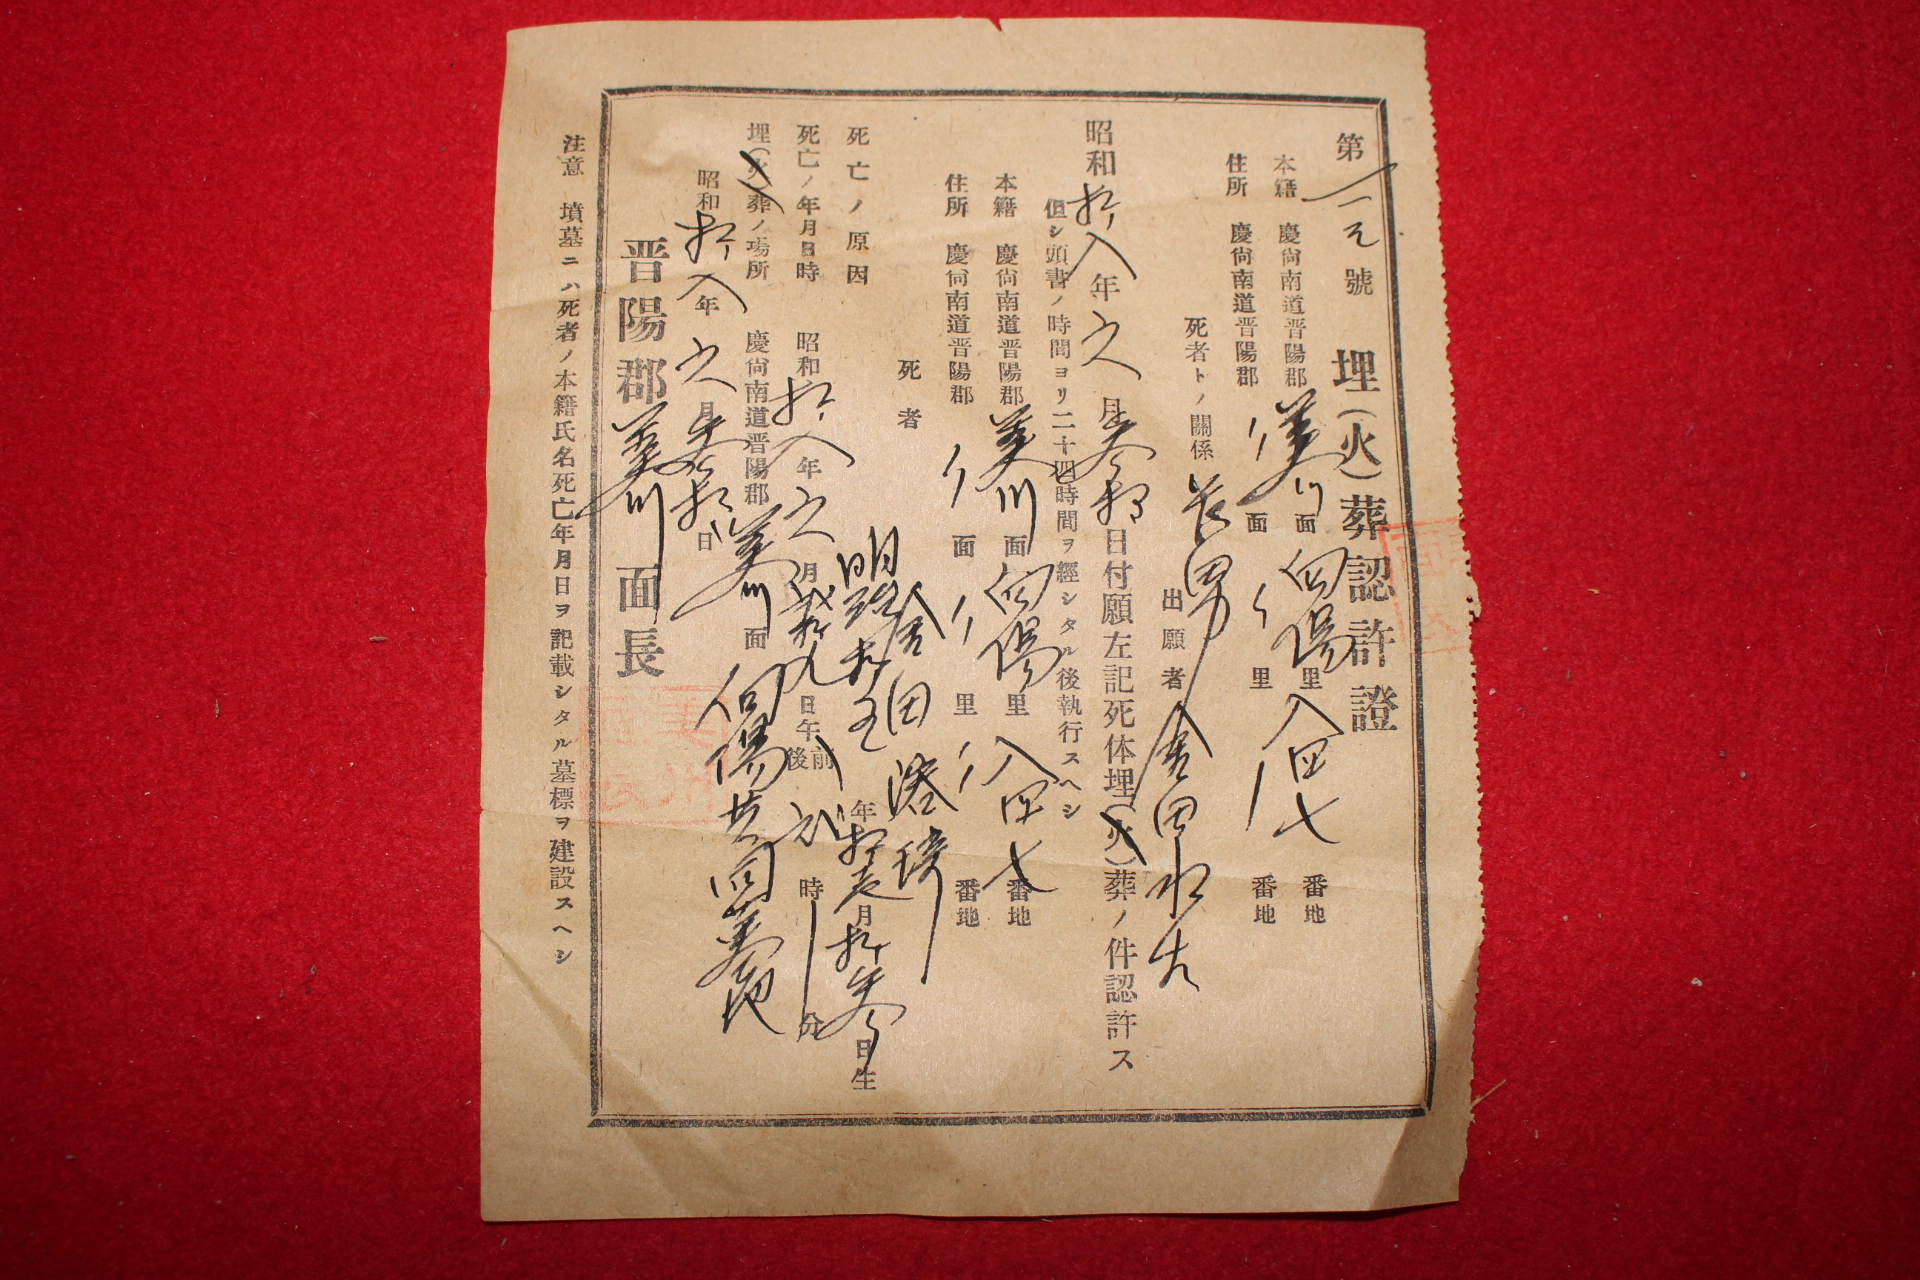 第 一 號 埋(火)葬認許證
本籍 慶尙南道晋陽郡 美川 面 向陽 里 八四七 番地
住所 慶尙南道晋陽郡 〃 面 〃 里 〃 番地
死者トノ關係 長男
出願者 金田水
昭和 拾八 年 六 月 参拾 日付願左記死体埋(火)葬ノ件認許ス
但シ頭書ノ時間ヨリ二十四時間ヲ經シタル後執行スヘシ
本籍 慶尙南道晋陽郡 美川 面 向陽 里 八四七 番地
住所 慶尙南道晋陽郡 〃 面 〃 里 〃 番地
死者 金田 琦
明治 年 月 日生
死亡ノ原因
死亡ノ年月日時 昭和 拾八 年 六 月 貳拾九 日午前後 時 分
埋(火)葬ノ場所 慶尙南道晋陽郡 美川 面 向陽共同墓地
昭和 拾八 年 六 月 参拾 日
晋陽郡 美川 面長
注意 墳墓ニハ死者ノ本籍氏名死亡年月日ヲ記載シタル墓標ヲ建設スヘシ